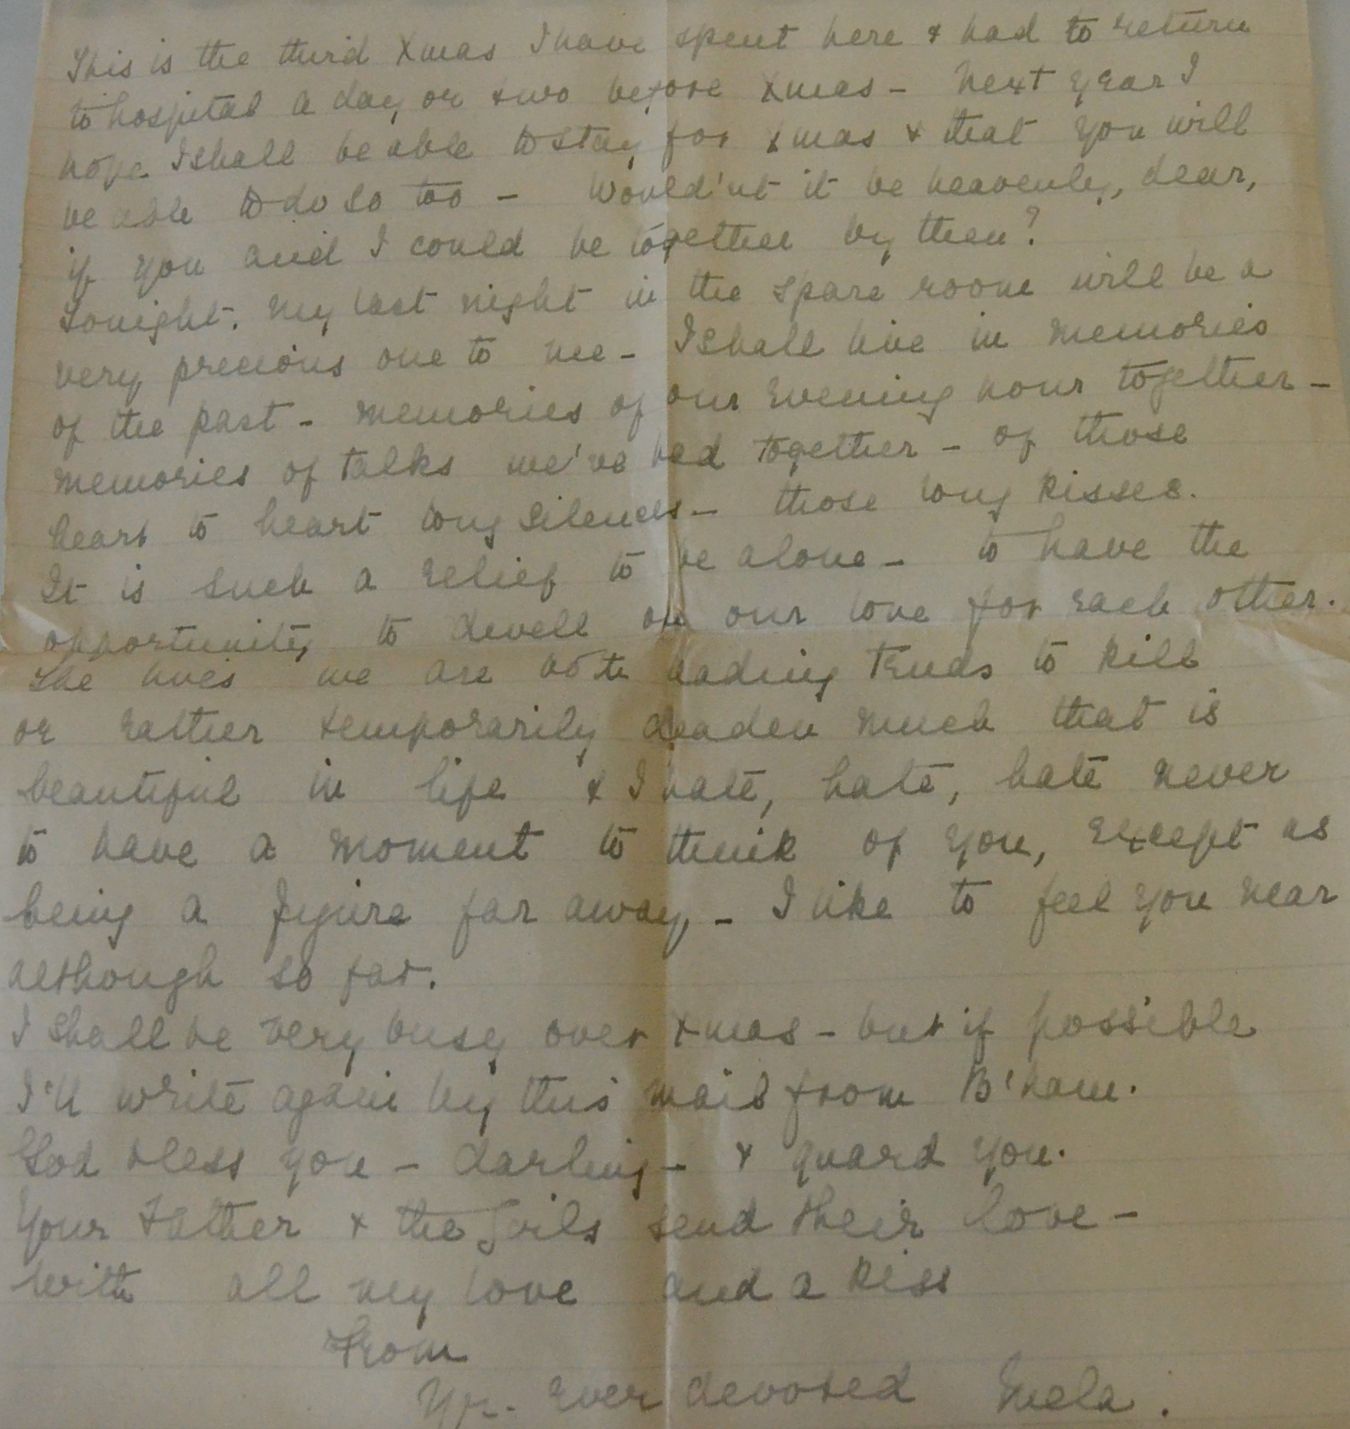 This is the third Xmas I have spent here & had to return
to hospital a day or two before Xmas - Next year I
hope I shall be able to stay for Xmas & that you will
be able to do so too - Would'nt it be heavenly, dear,
if you and I could be together by then?
Tonight. My last night in the spare room will be a
very precious one to me - I shall live in memories
of the past - memories of our evening hour together -
memories of talks we've had together - of those
heart to heart long silences - those long kisses.
It is such a relief to be alone - to have the
opportunity to dwell on our love for each other.
The lives we are both leading tends to kill
or rather temporarily deaden much that is
beautiful in life & I hate, hate, hate never
to have a moment to think of you, except as
being a figure far away, - I like to feel you near
although so far.
I shall be very busy over Xmas - but if possible
I'll write again by this mail from B'ham.
God bless you - darling - & guard you.
Your Father & the girls send their love -
With all my love and a kiss
From
Yr. ever devoted